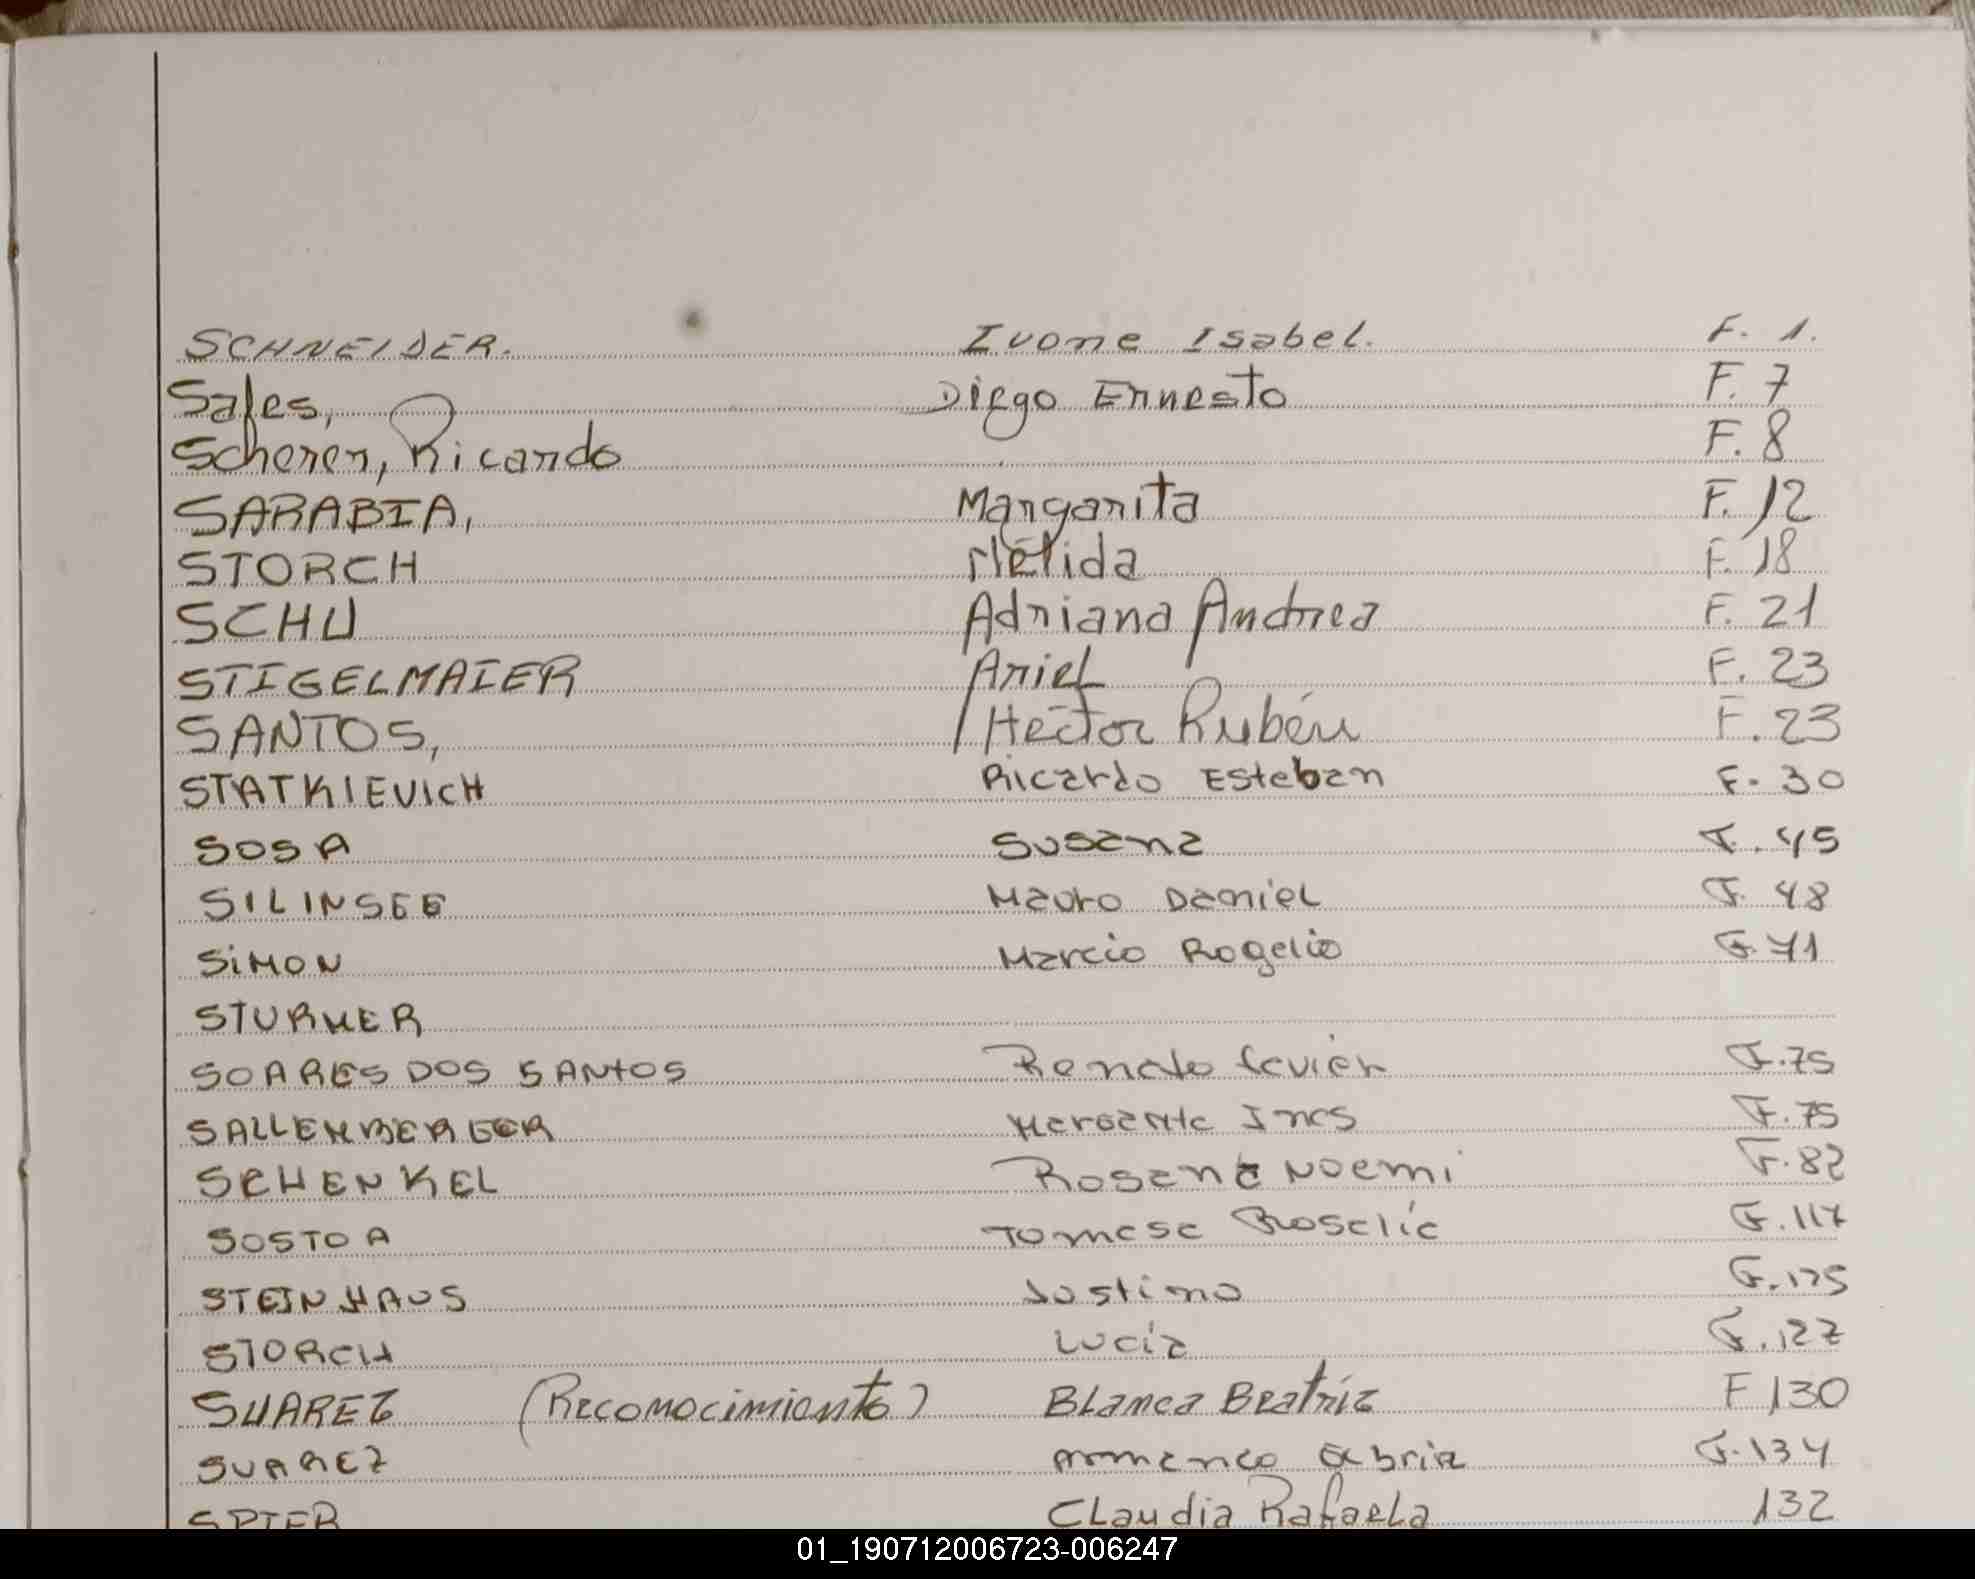 SCHNEIDER. Ivone Isabel. F. 1.
Sales, Diego Ernesto F. 7
Scherer, Ricardo F. 8
SARABIA, Margarita F. 12
STORCH Nélida F. 18
SCHU Adriana Andrea F. 21
STIGELMAIER Ariel F. 23
SANTOS, Héctor Rubén F. 23
STATKIEVICH Ricardo Esteban F. 30
SOSA Susana F. 45
SILINSEE Mauro Daniel F. 48
SiMON Marcio Rogelio F. 71
STURMER
SOARES DOS SANTOS Renato Javier F. 75
SALLEMBERGER Ines F. 75
SCHENKEL Rosana Noemi F. 82
SOSTOA Roselie F. 117
STEINHAUS Justino F. 125
STORCH Lucia F. 127
SUAREZ (Reconocimiento) Blanca Beatriz F 130
SUAREZ F. 134
SPIER Claudia Rafaela 132
01_190712006723-006247